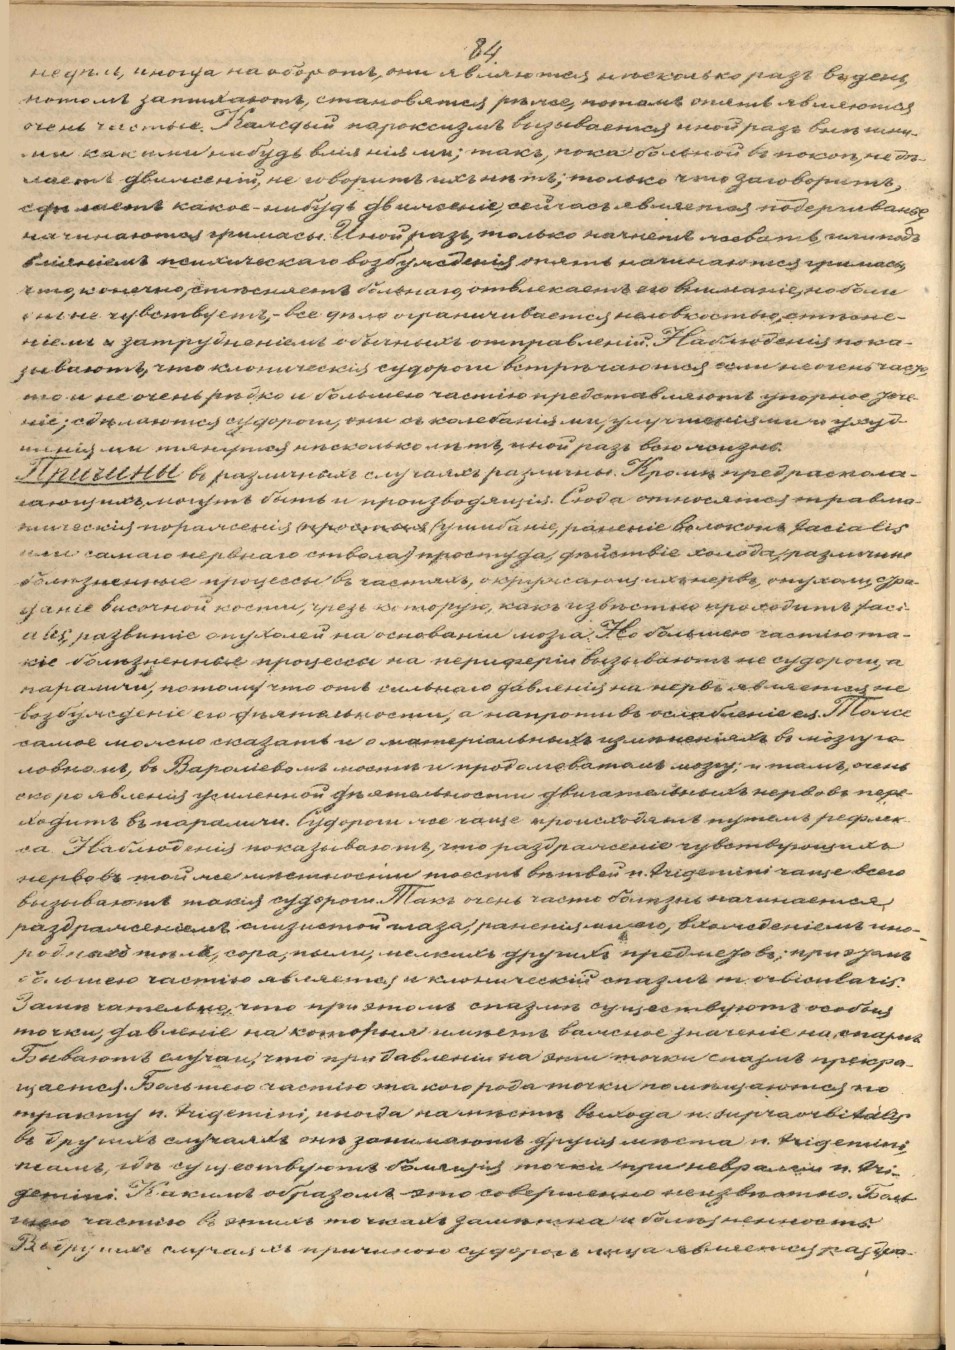 84
недѣли, иногда наоборотъ, они являются нѣсколько разъ въ день,
потомъ затихаютъ, становятся рѣже, потомъ опять являются
очень частые. Каждый пароксизмъ вызывается иной разъ внѣшни-
ми какими нибудь вліяніями; такъ, пока больной въ покоѣ, не дѣ-
лаетъ движеній, не говоритъ ихъ нѣтъ; только что заговоритъ,
сдѣлаетъ какое-нибудь движеніе, сейчасъ является подергиванье
начинаются гримасы. Иной разъ, только начнетъ жевать, или подъ
вліяніемъ психическаго возбужденія опять начинаются гримасы,
что, конечно, стѣсняетъ больнаго, отвлекаетъ его вниманіе, но боли
онъ не чувствуетъ, - все дѣло ограничивается неловкостью, стѣсне-
ніемъ и затрудненіемъ обычныхъ отправленій. Наблюденія пока-
зываютъ, что клоническія судороги встрѣчаются если не очень час-
то и не очень рѣдко и большею частію представляютъ упорное тече-
ніе; сдѣлаются судороги, они съ колебаніями, улучшеніями и ухуд-
шеніями тянутся нѣсколько лѣтъ, иной разъ всю жизнь.
Причины въ различныхъ случаяхъ различны. Кромѣ предраспола-
гающихъ, могутъ быть и производящія. Сюда относятся травма-
тическія пораженія (ушибаніе, раненіе волоконъ facialis
или самаго нервнаго ствола) простуда, дѣйствіе холода, различные
болѣзненные процессы въ частяхъ, окружающихъ нервъ, опухоли, стра-
даніе височной кости, чрезъ которую, какъ извѣстно проходитъ faci-
alis, развитіе опухолей на основаніи мозга. Но большею частію та-
кіе болѣзненные процессы на периферіи вызываютъ не судороги, а
параличи, потому что отъ сильнаго давленія на нервъ является не
возбужденіе его дѣятельности, а напротивъ ослабленіе ея. Тоже
самое можно сказать и о матеріальныхъ измѣненіяхъ въ мозгу го-
ловномъ, въ Вароліевомъ мостѣ и продолговатомъ мозгу; и тамъ, очень
скоро явленія усиленной дѣятельности двигательныхъ нервовъ пере-
ходитъ въ параличи. Судороги же чаще происходятъ путемъ рефлек-
са. Наблюденія показываютъ, что раздраженіе чувствующихъ
нервовъ той же мѣстности тоесть вѣтвей n. trigemini чаще всего
вызываютъ такія судороги. Такъ очень часто болѣзнь начинается
раздраженіемъ слизистой глаза, раненіями его, вхожденіемъ ино-
родныхъ тѣлъ, сора, пыли, мелкихъ другихъ предметовъ; при этомъ
большею частію является и клоническій спазмъ m. orbicularis.
Замѣчательно, что при этомъ спазмѣ существуютъ особыя
точки, давленіе на которыя имѣетъ важное значеніе на спазмъ
Бываютъ случаи, что при давленіи на эти точки спазмъ прекра-
щается. Большею частію такого рода точки помѣщаются по
тракту n. trigemini, иногда на мѣстѣ выхода n. supraorbitalis
въ другихъ случаяхъ онѣ занимаютъ другія мѣста n. trigemini,
тамъ, гдѣ существуютъ болящія точки при невралгіи n. tri-
gemini. Какимъ образомъ это совершенно неизвѣстно. Боль-
шею частію въ этихъ точкахъ замѣтна и болѣзненность.
Въ другихъ случаяхъ причиною судорогъ лица является раздра-